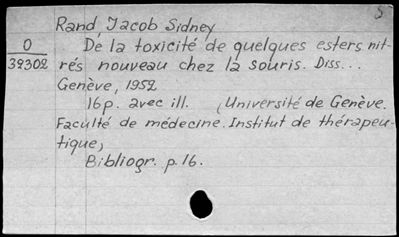 5
Rand, Jacob Sidney
O
39302
De la toxicité de quelques esters nit-
rés nouveau chez la souris. Diss...
Genève, 1952
16p. avec ill. (Université de Genève.
Faculté de médecine. Institut de thérapeu-
tique)
Bibliogr. p. 16.